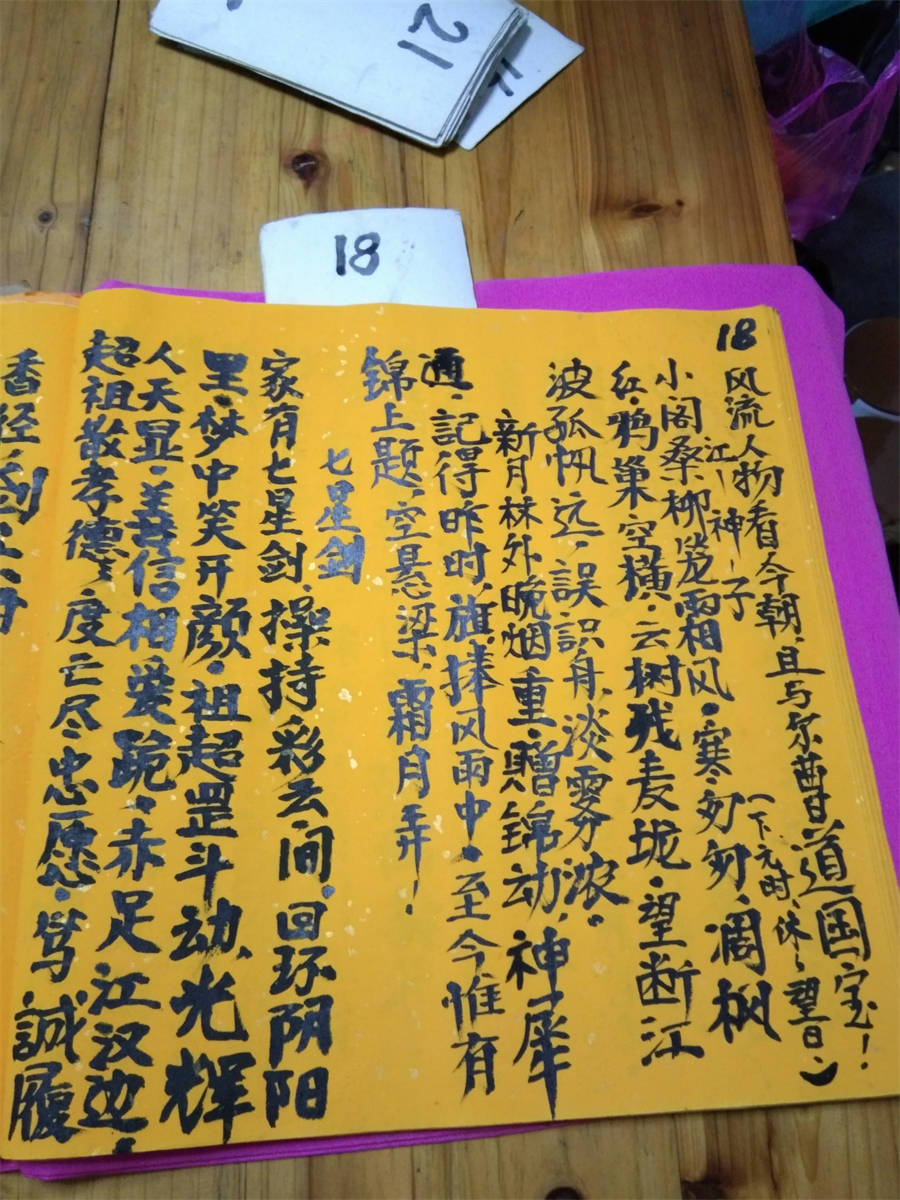 21
18
18
风流人物看今朝.且与尔曹甘道国宝!
江神子
(下元时.休望日.)
小阁桑柳笼霜相风.寒匆匆.凋枫
红.鸦巢空横.云树残麦垅.望断江
波孤帆远.誤誤舟.淡雾浓.
新月林外晚烟重.赠锦动,神犀
通.記得昨时,旗捧风雨中.至今惟有
锦上题.空悬梁.霜月弄.
七星剑
家有七星剑.操持彩云间.回环阴阳
里.梦中笑开颜.祖超罡斗动.光辉
人天显.善信相爱跪.赤足江汉边.
超祖散孝德.度亡尽忠愿.笃誠履
香经